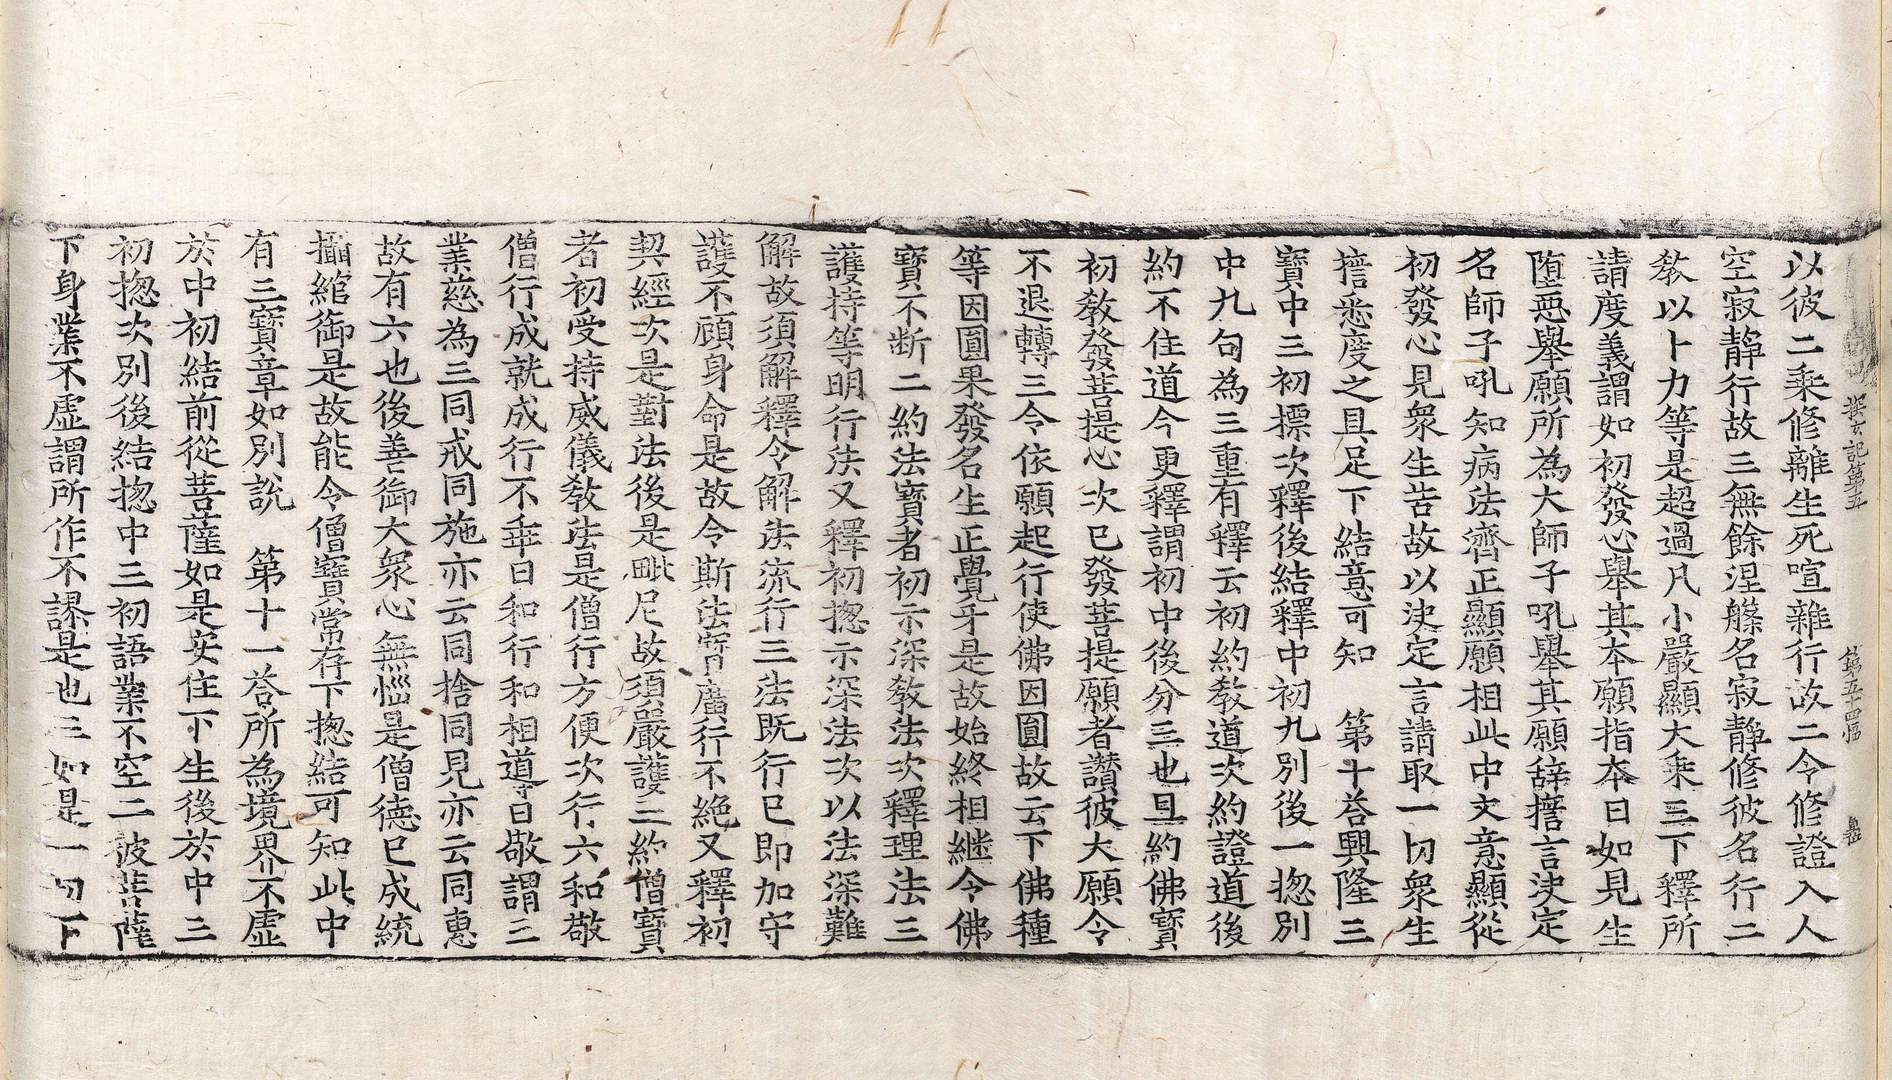 探玄記第五　第五十四幅
以彼二乘修離生死喧雜行故二令修證入人
空寂靜行故三無餘涅槃名寂靜修彼名行二
教以卜力等是超過凡小嚴顯大乘三下釋所
請度義謂如初發心舉其本願指本曰如見生
堕惡舉願所為大師子吼舉其願辞𢴇言決定
名師子吼知病法濟正顯願相此中文意顯從
初發心見衆生苦故以決定言請取一切衆生
𢴇悉度之具足下結意可知　第十荅興隆三
寶中三初摽次釋後結釋中初九別後一揔別
中九句為三重有釋云初約教道次約證道後
約不住道今更釋謂初中後分三也且約佛寶
初教發菩提心次已發菩提願者讃彼大願令
不退轉三令依願起行使佛因圓故云下佛種
等因圓果發名生正覺牙是故始終相継令佛
寶不断二約法寶者初示深教法次釋理法三
護持等明行法又釋初揔示深法次以法深難
解故須解釋令解法流行三法既行已即加守
護不顧身命是故令斯法寶廣行不絶又釋初
契經次是對法後是毗尼故須嚴護三約僧寶
者初受持威儀教法是僧行方便次行六和敬
僧行成就成行不乖曰和行和相導曰敬謂三
業慈為三同戒同施亦云同捨同見亦云同惠
故有六也後善御大衆心無惱是僧德已成統
攝綰御是故能令僧寶常存下揔結可知此中
有三寶章如別說　第十一荅所為境界不虛
於中初結前從菩薩如是安住下生後於中三
初揔次別後結揔中三初語業不空二被菩薩
下身業不虛謂所作不謬是也三如是一切下